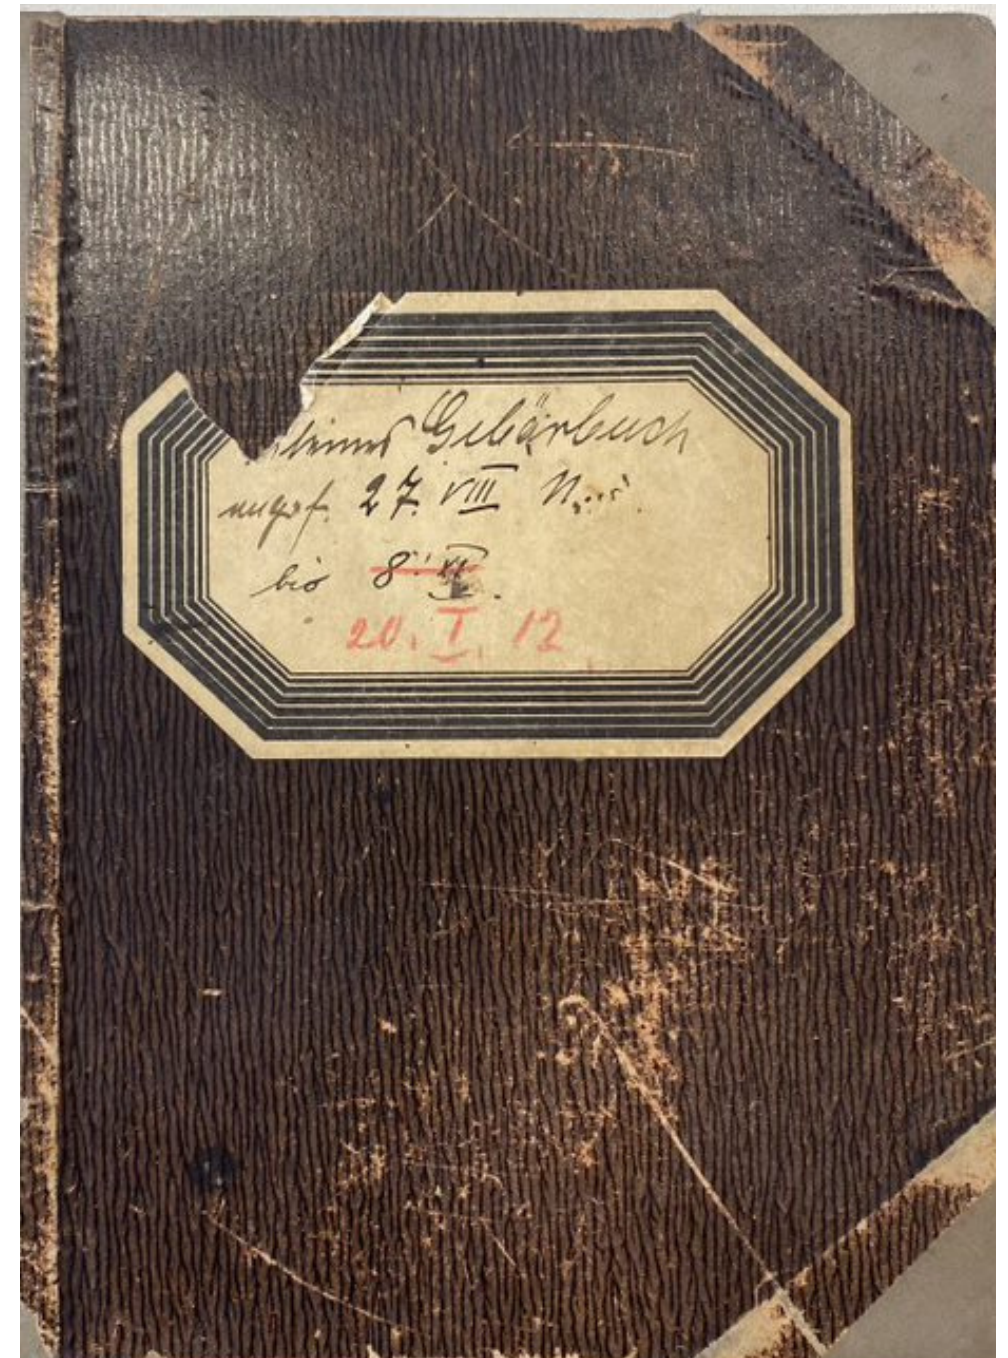 Gebärbuch
angef. 27. VIII 11.
bis 8. XI.
20. I. 12